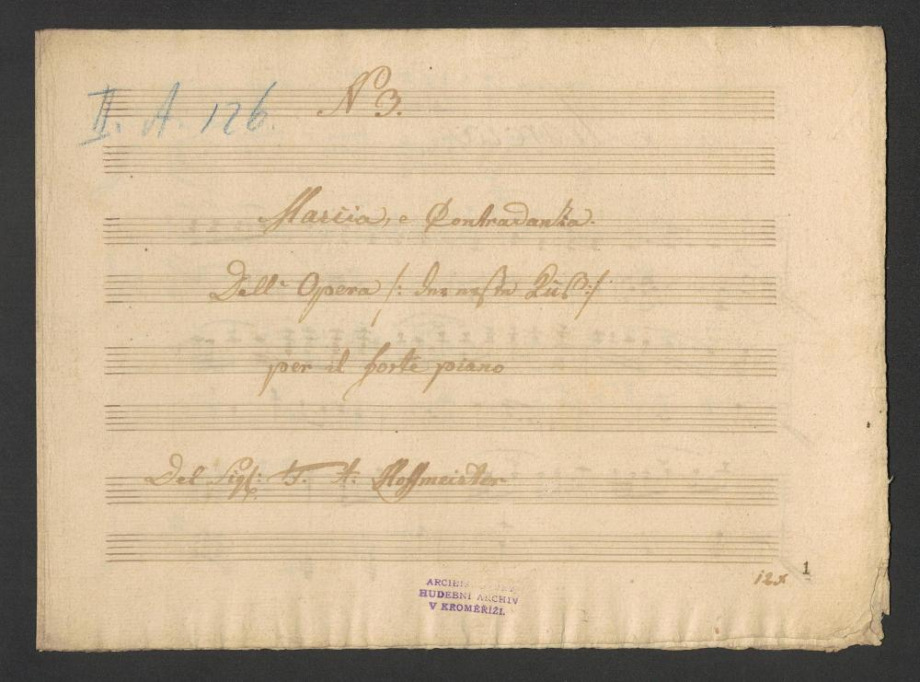 II. A. 126.
No 3.
Marcia, e Contradanza.
Dell' Opera /: der erste Kuß :/
per il forte piano
Del Sigl: F. A: Hoffmeister
12x
1
HUDEBNÍ ARCHIV
V KROMĚŘÍŽI.